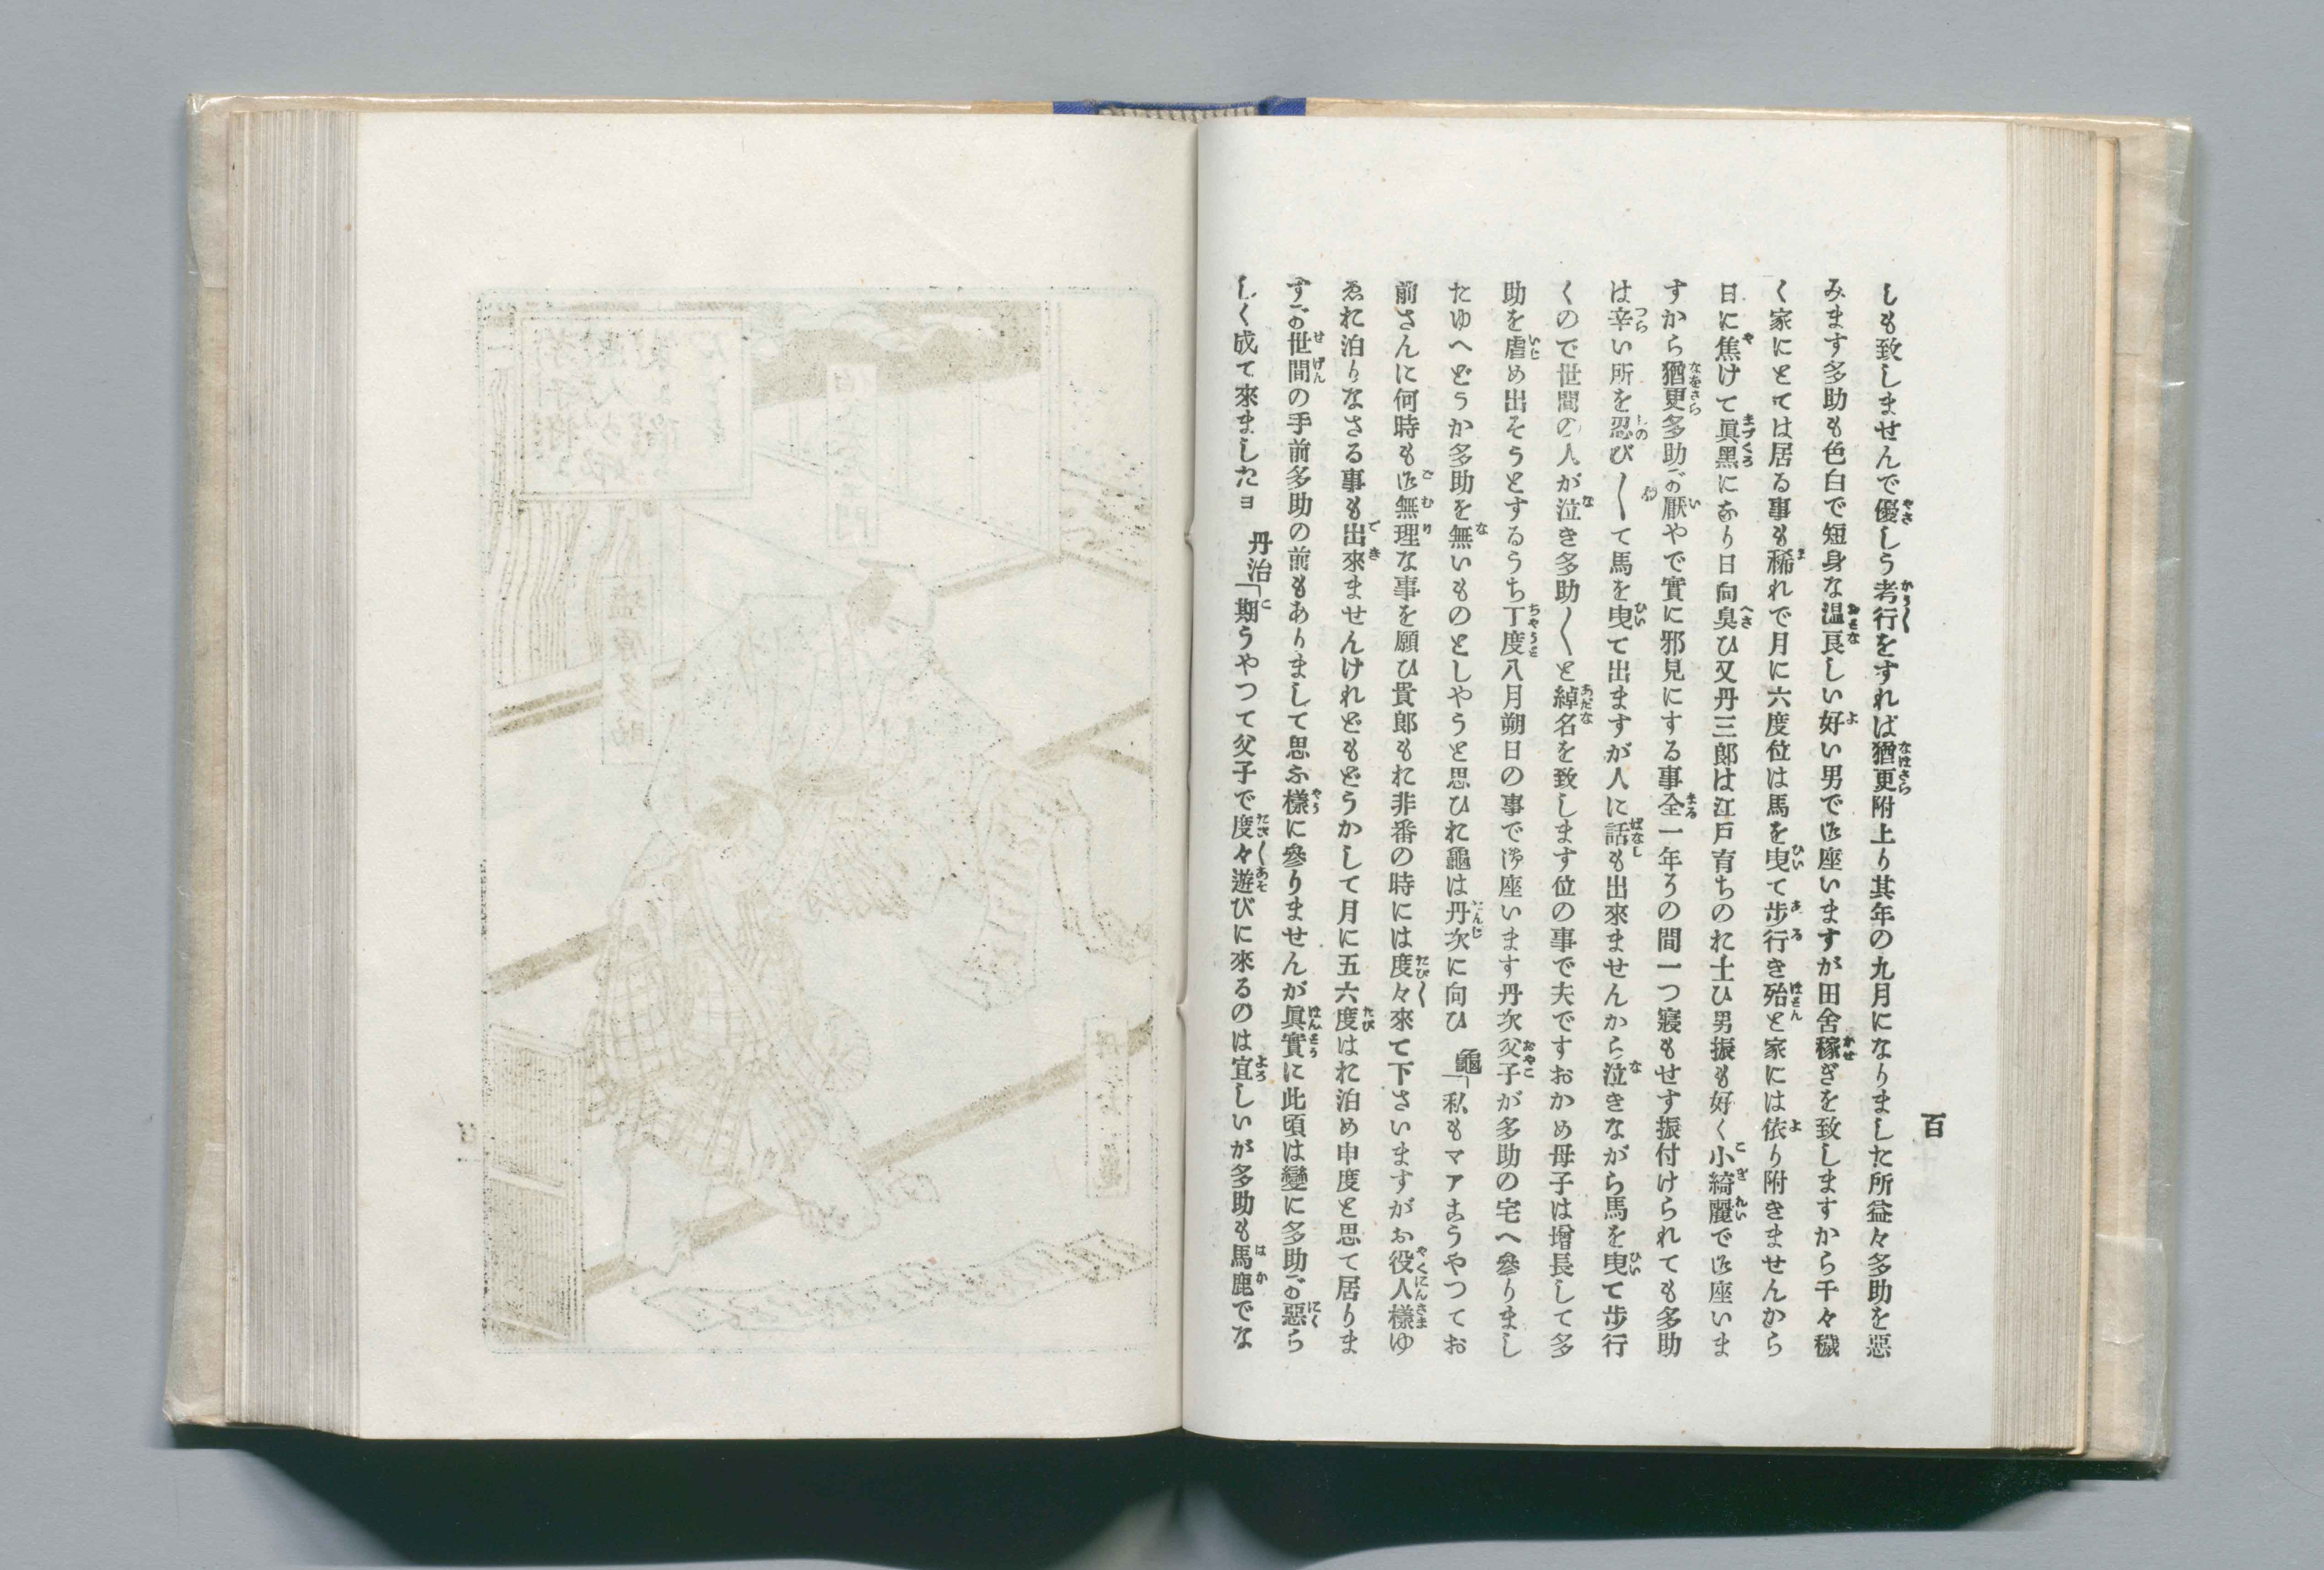 百
しも致しませんで優しう考行をすれば猶更附上り其年の九月になりました所益々多助を惡
みます多助も色白で短身な温良しい好い男で御座いますが田舍稼ぎを致しますから千々穢
く家にとては居る事も稀れで月に六度位は馬を曳て歩行き殆と家には依り附きませんから
日に焦けて眞黑になり日向臭ひ又丹三郎は江戸育ちのお士ひ男振も好く小綺麗で御座いま
すから猶更多助が厭やで實に邪見にする事全一年うの間一つ寢もせす振付けられても多助
は辛い所を忍び〳〵て馬を曳て出ますが人に話も出來ませんから泣きながら馬を曳て歩行
くので世間の人が泣き多助〳〵と綽名を致します位の事で夫ですおかめ母子は增長して多
助を虐め出そうとするうち丁度八月朔日の事で御座います丹次父子が多助の宅へ參りまし
たゆへどうか多助を無いものとしやうと思ひお龜は丹次に向ひ　龜「私もマアこうやつてお
前さんに何時も御無理な事を願ひ貴郎もお非番の時には度々來て下さいますがお役人樣ゆ
ゑお泊りなさる事も出來ませんけれどもどうかして月に五六度はお泊め申度と思て居りま
すが世間の手前多助の前もありまして思ふ樣に參りませんが眞實に此頃は變に多助が惡ら
しく成て來ましたヨ　丹治「期うやつて父子で度々遊びに來るのは宜しいが多助も馬鹿でな